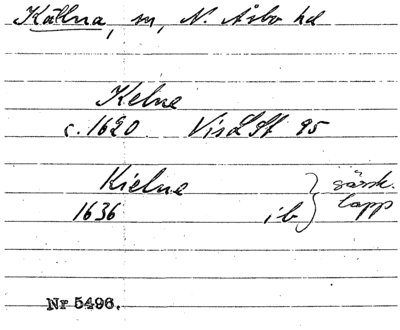 Källna, sn, N. Åsbo hd
Kelne
c. 1620 VisLSt 95
Kielne } särsk.
1636 ib } lapp
Nr 5496.